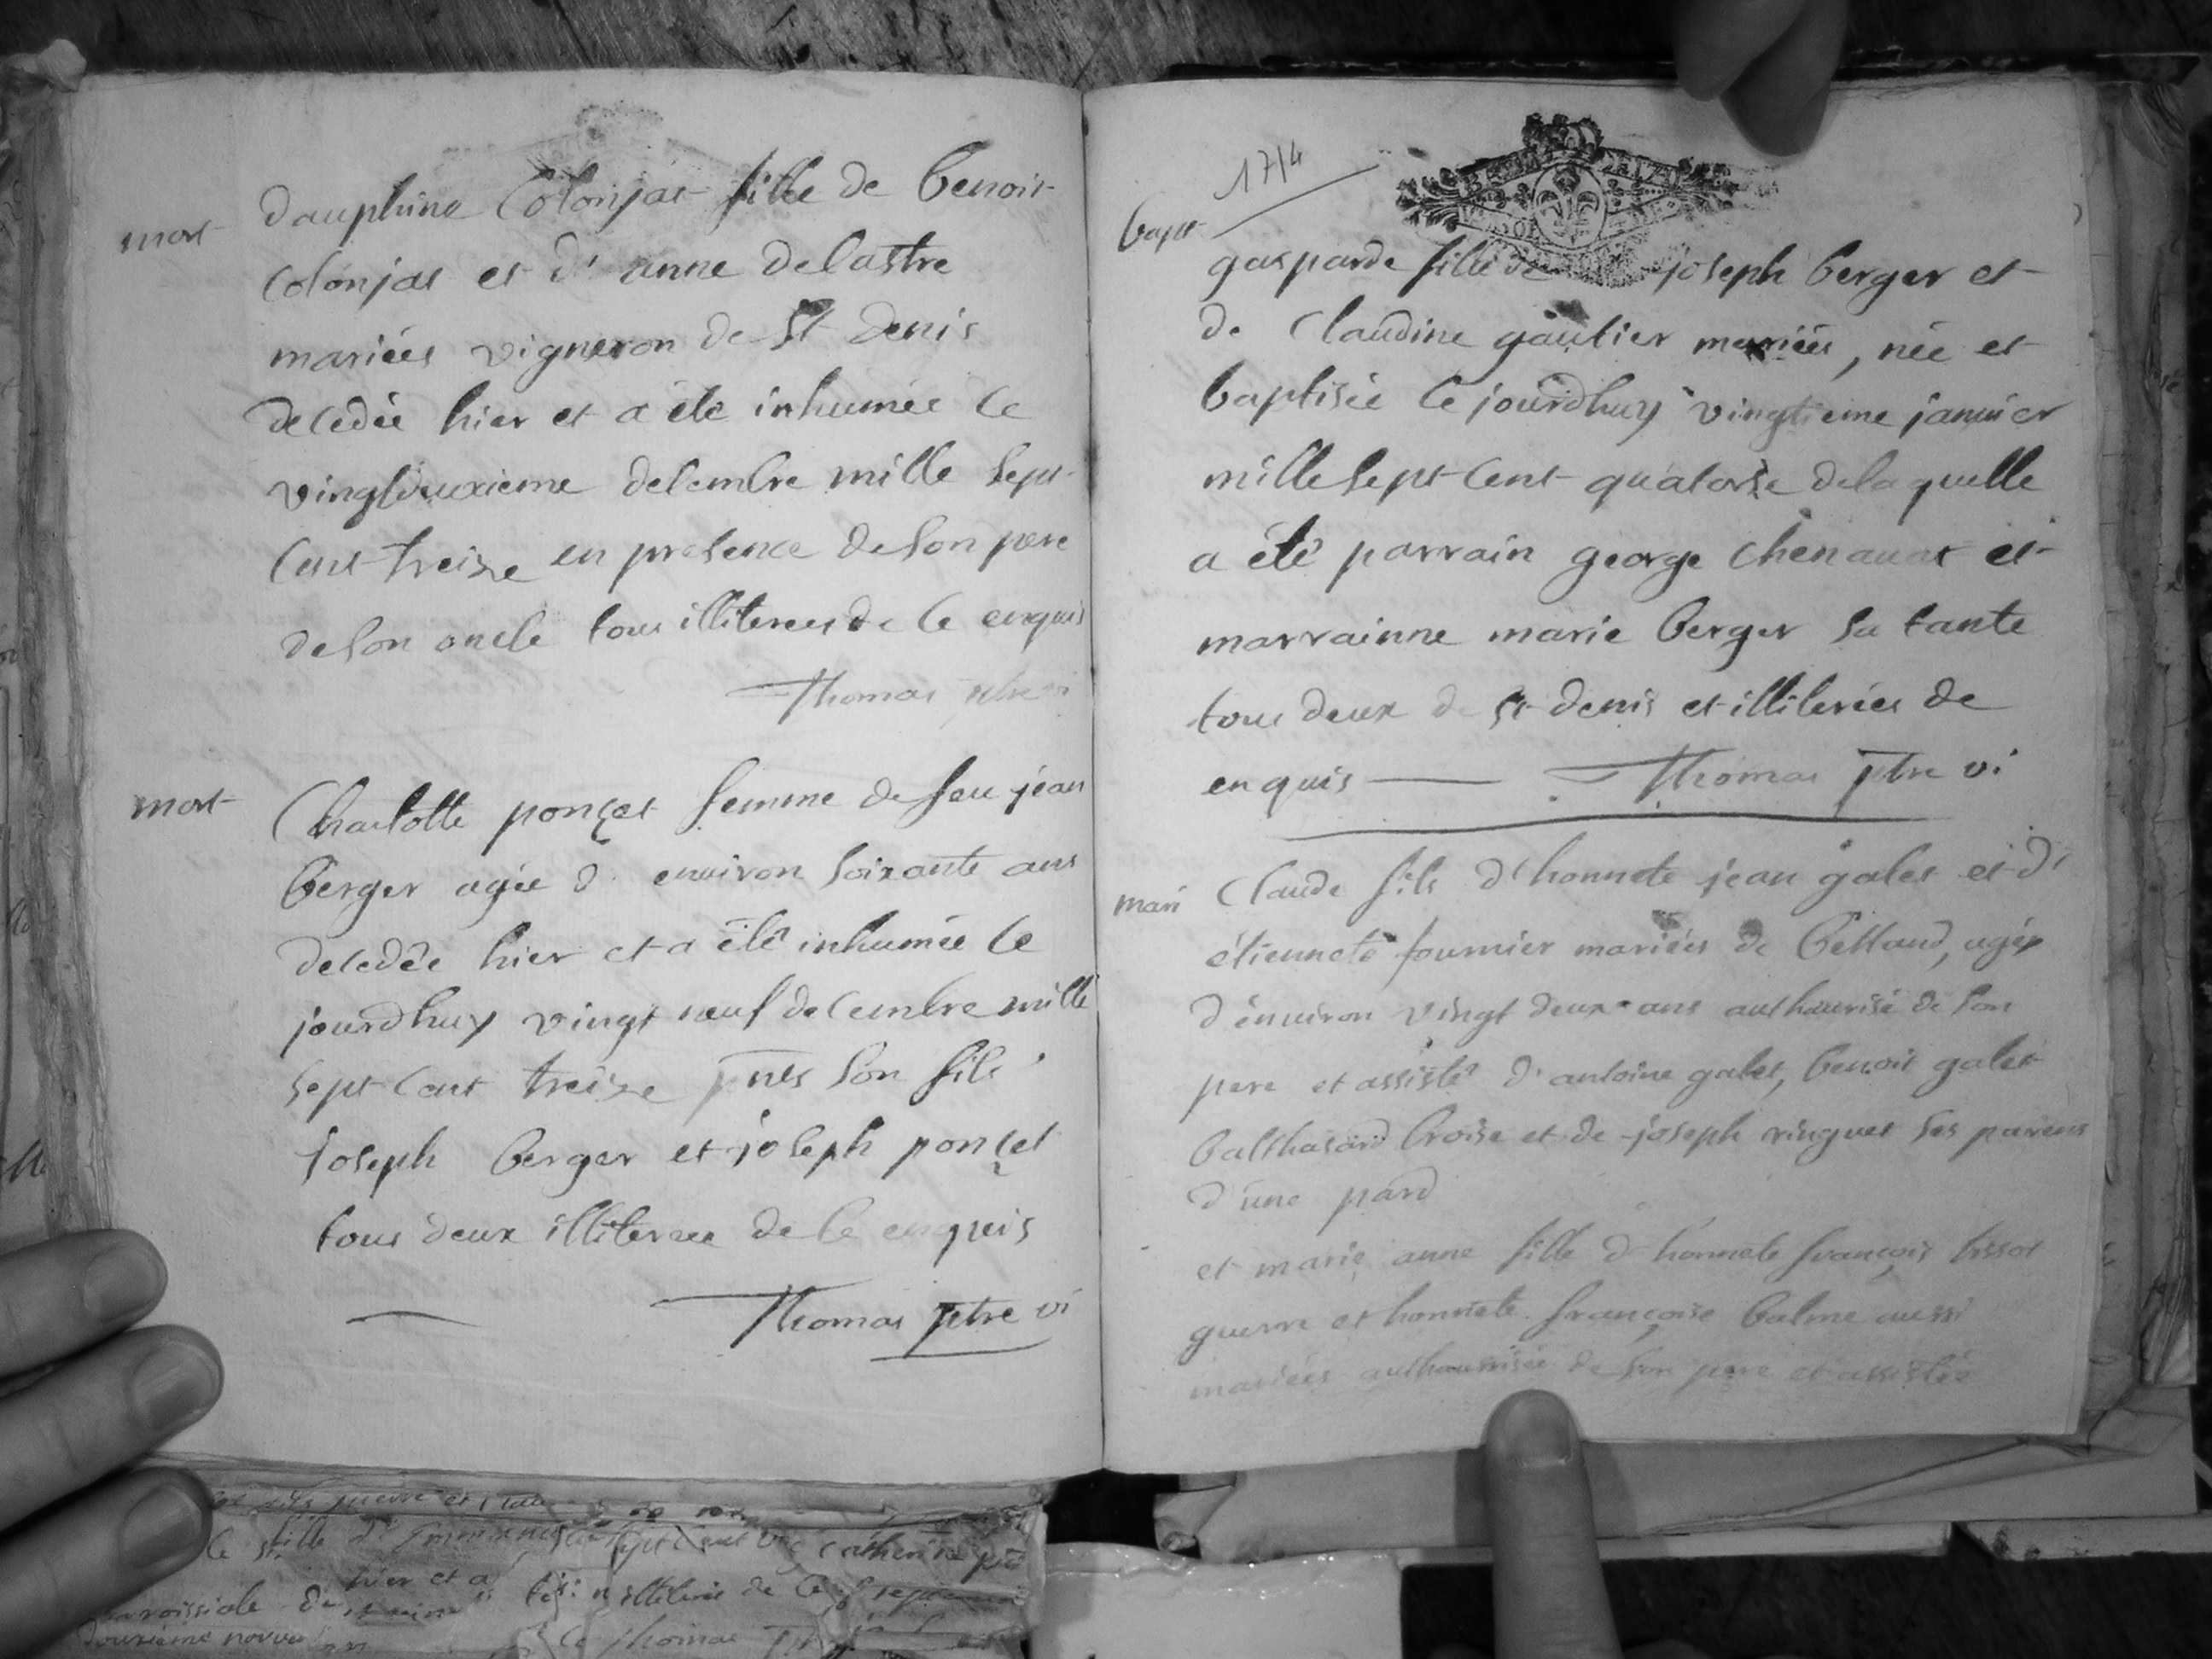 mort
dauphine Colonjat fille de benoit
Colonjat et d' anne delastre
mariées vigneron de St denis
decedée hier et a été inhumée ce
vingtdeuxieme decembre mille sept
cent treize en presence de son pere
de son oncle tous illiterées de ce enquis
Thomas ptre vi
mort
Charlotte ponçet femme de feu jean
berger agée d' environ soixante ans
decedée hier et a été inhumée ce
jourdhuy vingt neuf decembre mille
sept cent treize pnts son fils
Joseph berger et joseph ponçet
tous deux illiterees de ce enquis
Thomas ptre vi
1714
bapt
gasparde fille de joseph berger et
de Claudine gautier mariées, née et
baptisée ce jourdhuy vingtieme janvier
mille sept cent quatorse de laquelle
a été parrain george Chenavat et
marrainne marie berger sa tante
tous deux de st denis et illiterées de
enquis Thomas ptre vi
mari
Claude fils d'honnete jean galet et d'
étiennete fournier mariées de , agée
d'environ vingt deux ans authaurisé de son
pere et assisté d'antoine galet, benoit galet
balthasard broise et de joseph ringuet ses parens
d'une pard
et marie anne fille d'honnete françois tissot
guerre et honnete françoise balme aussi
mariées authaurisée de son pere et assistée
fille d'
hier et a
illiteré de ce